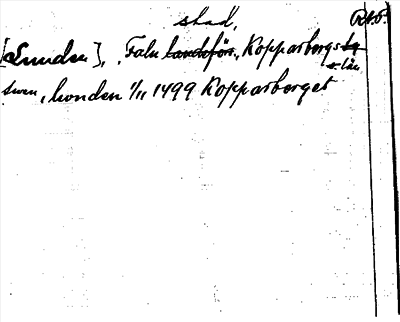 stad,
[Lunden], Falu landsförs., Kopparbergs
s län
Swen, honden 1/11 1499 Kopparberget